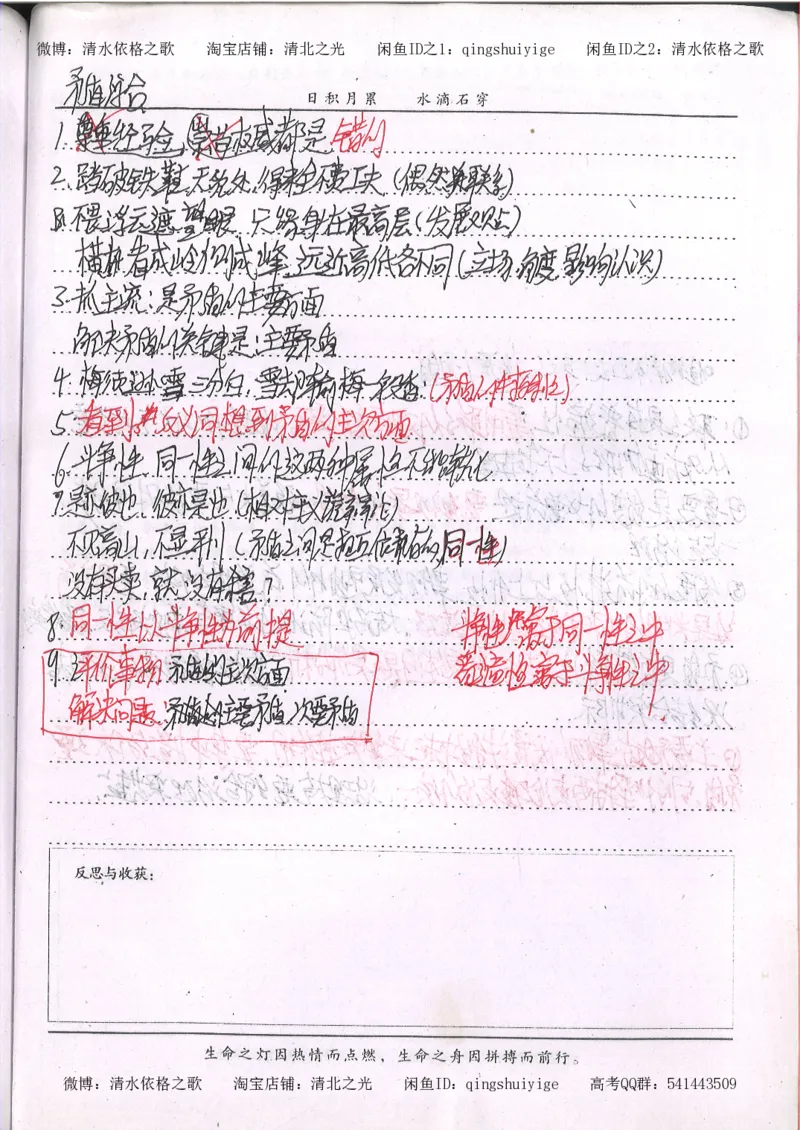 微博：清水依格之歌 淘宝店铺：清北之光 闲鱼ID之1：qingshuiyige 闲鱼ID之2：清水依格之歌
矛盾综合
日积月累 水滴石穿
1. 尊重经验，崇尚权威都是错的
2. 踏破铁鞋无觅处，得来全不费工夫（偶然联系）
不畏浮云遮望眼，只缘身在最高层（发展观点）
横看成岭侧成峰，远近高低各不同（立场，角度影响认识）
3. 抓主流：是矛盾的主要方面
解决矛盾的关键是：主要矛盾
4. 梅须逊雪三分白，雪却输梅一段香：（矛盾的特殊性）
5. 看到 意义 同想到矛盾的主次方面
6. 斗争性，同一性之间的这两种属性不能转化
7. 是亦彼也，彼亦是也（相对主义诡辩论）
不见高山，不显平川（矛盾之间是相互依存的，同一性）
没有买卖，就没有
8. 同一性以斗争性为前提 斗争性寓于同一性之中
9. 评价事物：矛盾的主次方面 普遍性寓于斗争性之中
解决问题：矛盾的主要矛盾，次要矛盾
反思与收获：
生命之灯因热情而点燃，生命之舟因拼搏而前行。
微博：清水依格之歌 淘宝店铺：清北之光 闲鱼ID：qingshuiyige 高考QQ群：541443509